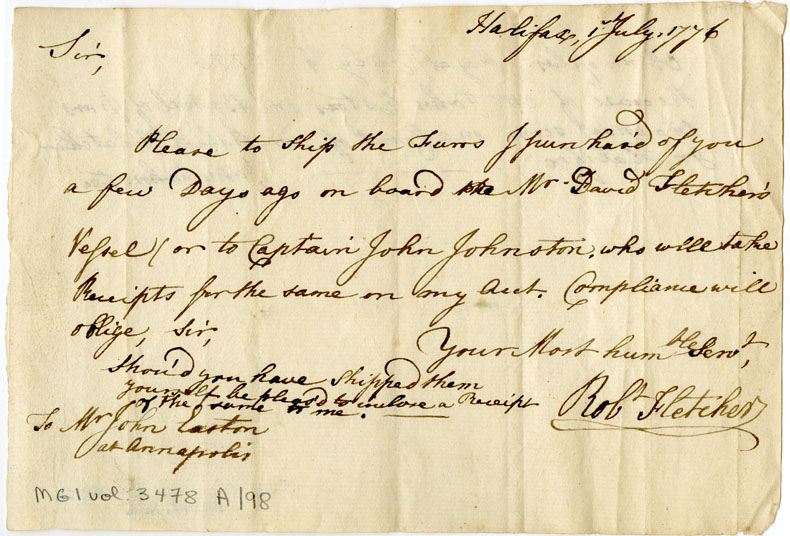 Halifax, 1st July, 1776
Sir,
Please to ship the Furrs I purchas'd of you
a few Days ago on board Mr. David Fletcher's
Vessel (or to Captain John Johnston, who will take
Receipts for the same on my Acct. Compliance will
oblige, Sir,
Your Most humble Servt,
Robt Fletcher
Should you have shipped them
yourself be pleas'd to inclose a Receipt
of the same to me.
To Mr John Easton
at Annapolis
MG1 vol. 3478 A/98